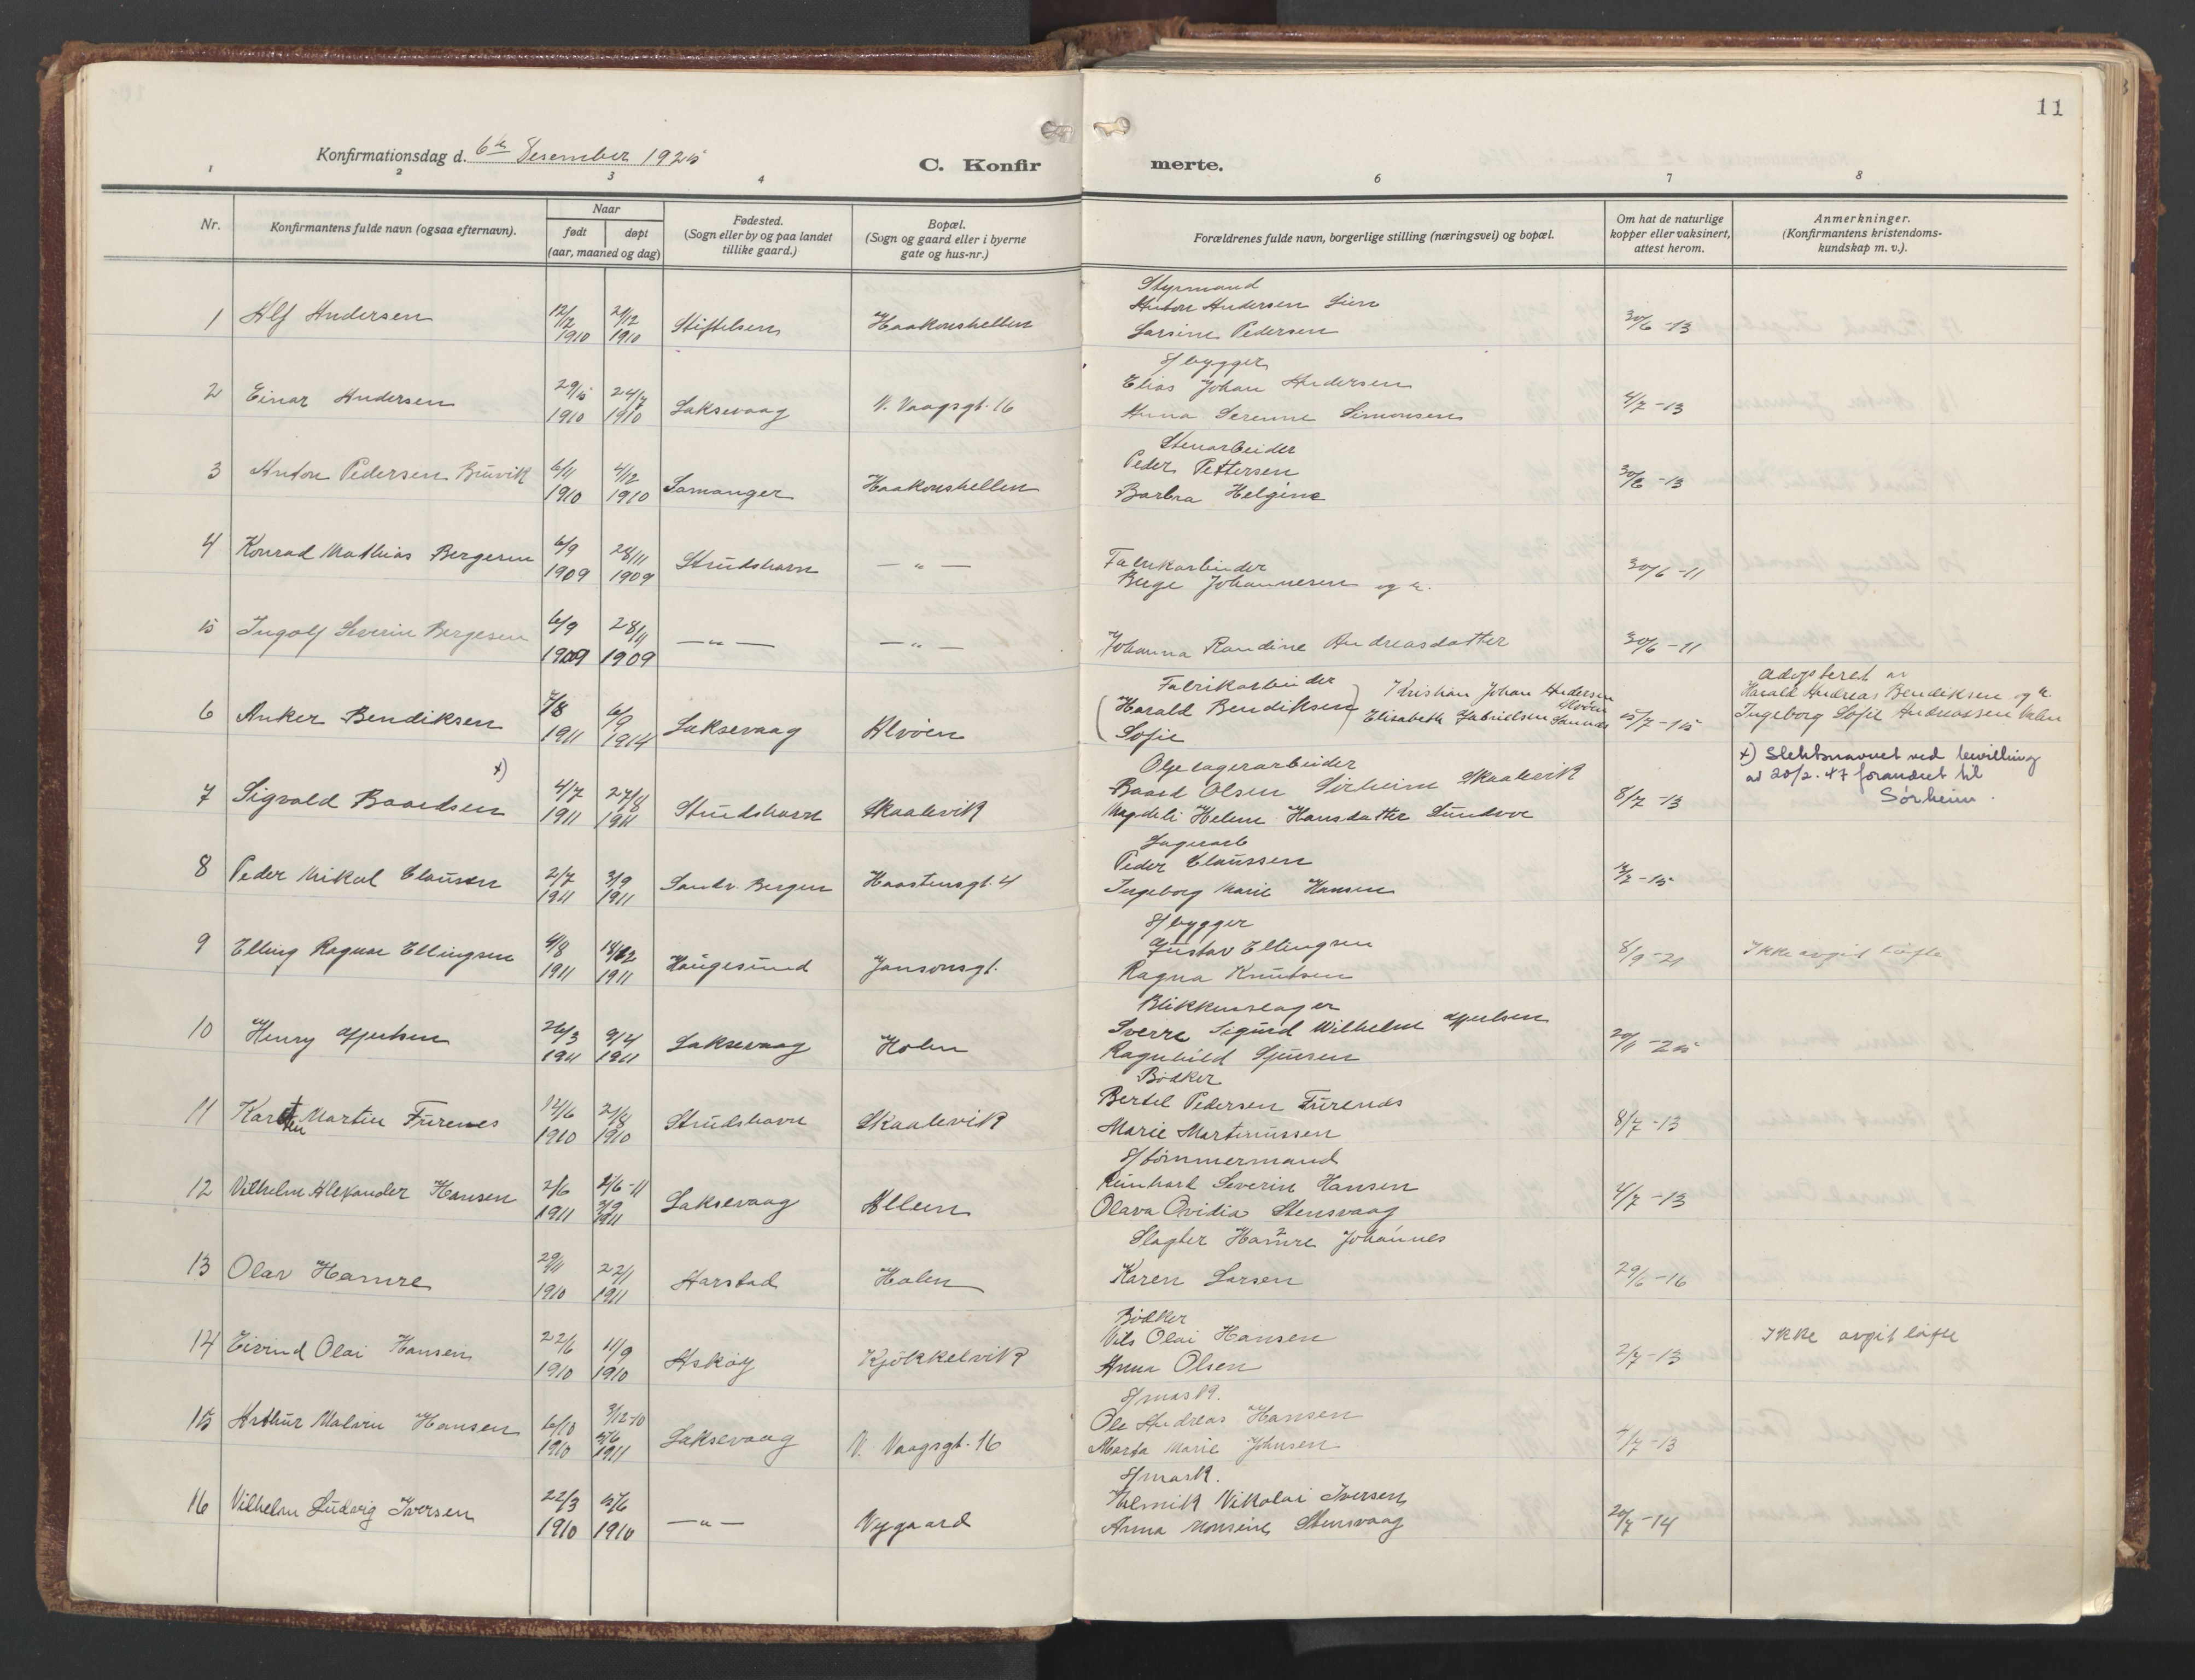 11
Konfirmationsdag d. 6te Desember 1925
C. Konfirmerte.
1 2 3 4 6 7 8
Nr.
Konfirmantens fulde navn (ogsaa efternavn).
Naar
født døpt
(aar, maaned og dag)
Fødested.
(Sogn eller by og paa landet
tillike gaard.)
Bopæl.
(Sogn og gaard eller i byerne
gate og hus-nr.)
Forældrenes fulde navn, borgerlige stilling (næringsvei) og bopæl.
Om hat de naturlige
kopper eller vaksinert,
attest herom.
Anmerkninger.
(Konfirmantens kristendoms-
kundskap m. v.).
Styrmand
1 Alf Andersen 12/12 1910 21/12 1910 Stiftelsen Haakonshellen Anton Andersen Lien
Larsine Pedersen 30/6 -13
S/bygger
2 Einar Andersen 29/5 1910 24/7 1910 Laksevaag N. Vaagsgt. 16 Elias Johan Andersen
Anna Serenne Simonsen 4/7 -13
Stenarbeider
3 Anton Pedersen Buvik 6/11 1910 4/12 1910 Samanger Haakonshellen Peder Pettersen
Barbra Helgine 30/6 -13
4 Konrad Mathias Bergesen 6/9 1909 28/11 1909 Strudshavn — " — Fabrikarbeider
Berge Johannesen og h. 30/6 -11
5 Ingolf Severin Bergesen 6/9 1909 28/11 1909 — " — — " — Johanna Randine Andreasdatter 30/6 -11
Fabrikarbeider
6 Anker Bendiksen 7/8 1911 6/9 1914 Laksevaag Alvøen (Harald Bendiksen) Kristian Johan Andersen Alvøen
Sofie Elisabeth Gabrielsen Sannes 5/7 -15
adopteret av
Harald Andreas Bendiksen og h.
Ingeborg Sofie Andreassen
Oljelagerarbeider
7 Sigvald Baardsen x) 4/7 1911 27/8 1911 Strudshavn Skaalevik Baard Olsen Sørheim Skaalevik
Magdeli Helene Hansdatter 8/7 -13
x) Slektsnavnet ved bevilling
av 20/2. 47 forandret til
Sørheim.
Lagerarb
8 Peder Mikal Claussen 2/7 1911 3/9 1911 Sandv. Bergen Haastensgt. 4 Peder Claussen
Ingeborg Marie Hansen -15
S/bygger
9 Elling Ragnar Ellingsen 4/8 1911 1911 Haugesund Jansonsgt. Gustav Ellingsen
Ragna Knutsen 8/9 -21 Ikke avgit løfte
Blikkenslager
10 Henry Gjertsen 26/3 1911 9/4 1911 Laksevaag Holen Sverre Sigurd Wilhelm Gjertsen
Ragnhild Sjursen 20/11 -25
Bødker
11 Karsten Martin Furenes 12/6 1910 21/8 1910 Strudshavn Skaalevik Bertel Pedersen Furenes
Marie Martinussen 8/7 -13
S/tømmermand
12 Vilhelm Alexander Hansen 2/6 1911 2/6 -11 3/9 1911 Laksevaag Alleen Reinhart Severin Hansen
Olava Ovidia Stensvaag 4/7 -13
Slagter Hamre Johannes
13 Olav Hamre 29/11 1910 22/1 1911 Harstad Holen Karen Larsen 29/6 -16
Bødker
14 Eivind Olai Hansen 22/6 1910 11/9 1910 Askøy Kjøkkelvik Nils Olai Hansen
Anna Olsen 2/7 -13 Ikke avgit løfte
S/mask.
15 Arthur Malvin Hansen 6/10 1910 3/12 -10 5/6 1911 Laksevaag N. Vaagsgt. 16 Ole Andreas Hansen
Marta Marie Johnsen 4/7 -13
S/mask.
16 Vilhelm Ludvig Iversen 22/3 1910 5/6 1910 — " — Nygaard Nikolai Iversen
Anna Monsine Stensvaag 20/7 -14